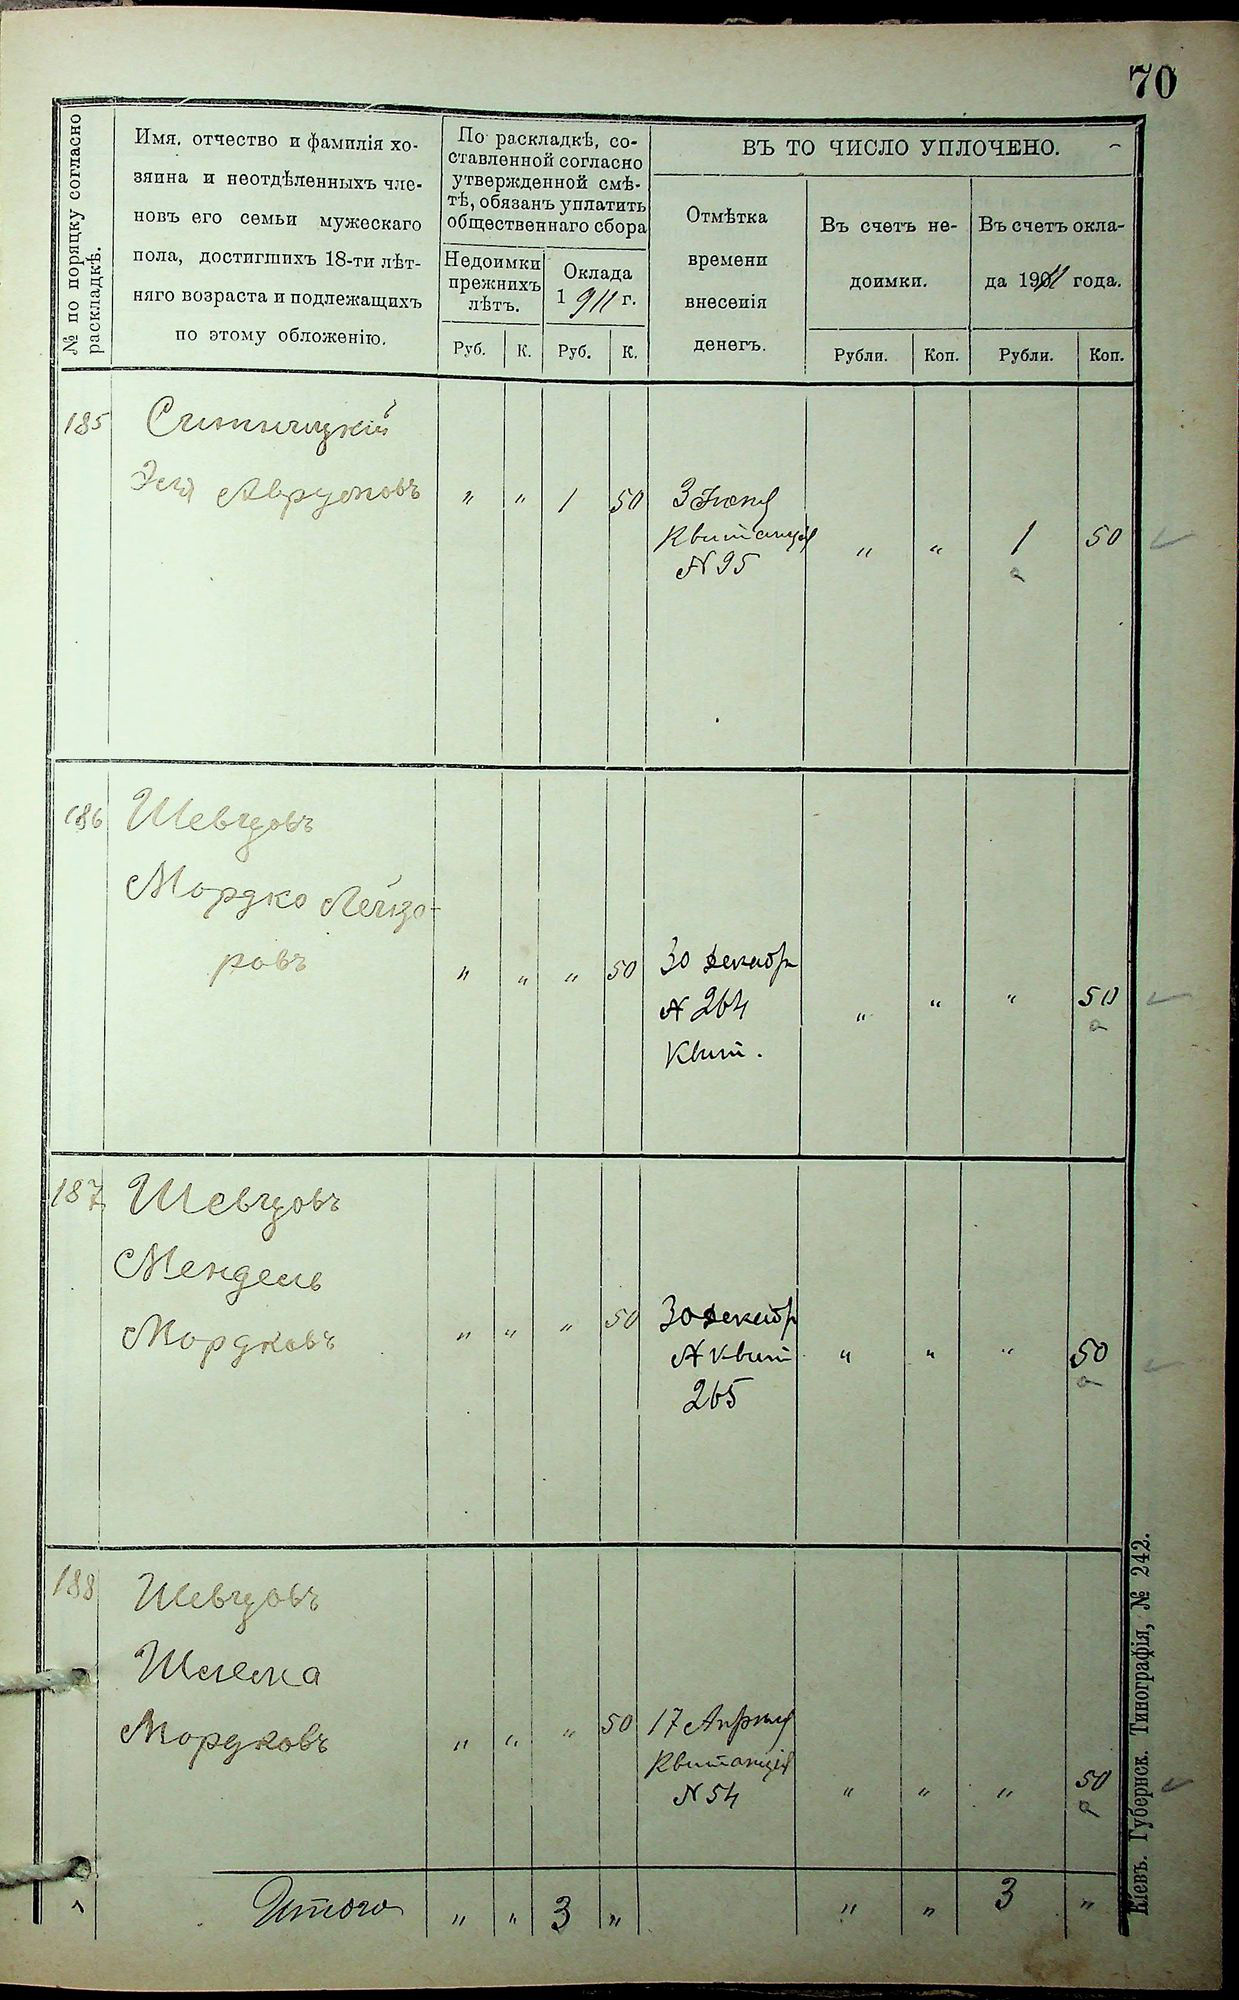 70
№ по порядку согласно
раскладкѣ.
Имя, отчество и фамилія хо-
зяина и неотдѣленныхъ чле-
новъ его семьи мужескаго
пола, достигшихъ 18-ти лѣт-
няго возраста и подлежащихъ
по этому обложенію.
По раскладкѣ, со-
ставленной согласно
утвержденной смѣ-
тѣ, обязанъ уплатить
общественнаго сбора
Недоимки
прежнихъ
лѣтъ.
Оклада
1911 г.
Руб. К. Руб. К.
ВЪ ТО ЧИСЛО УПЛОЧЕНО.
Отмѣтка
времени
внесенія
денегъ.
Въ счетъ не-
доимки.
Въ счетъ окла-
да 1911 года.
Рубли. Коп. Рубли. Коп.
185
Эля Аврумовъ " " 1 50 3 Іюня
Квитанція " " 1 50
N 95
186 Шевцовъ
Мордко Лейзо-
ровъ " " " 50 30 декабр
N 264 " " " 50
Квит.
187 Шевцовъ
Мендель
Мордковъ " " " 50 30 декабр
N квит " " " 50
265
188 Шевцовъ
Шлема
Мордковъ " " " 50 17 Апрѣля
Квитанція
N 54 " " " 50
Итого " " 3 " " " 3 "
Кіевъ. Губернск. Типографія, № 242.